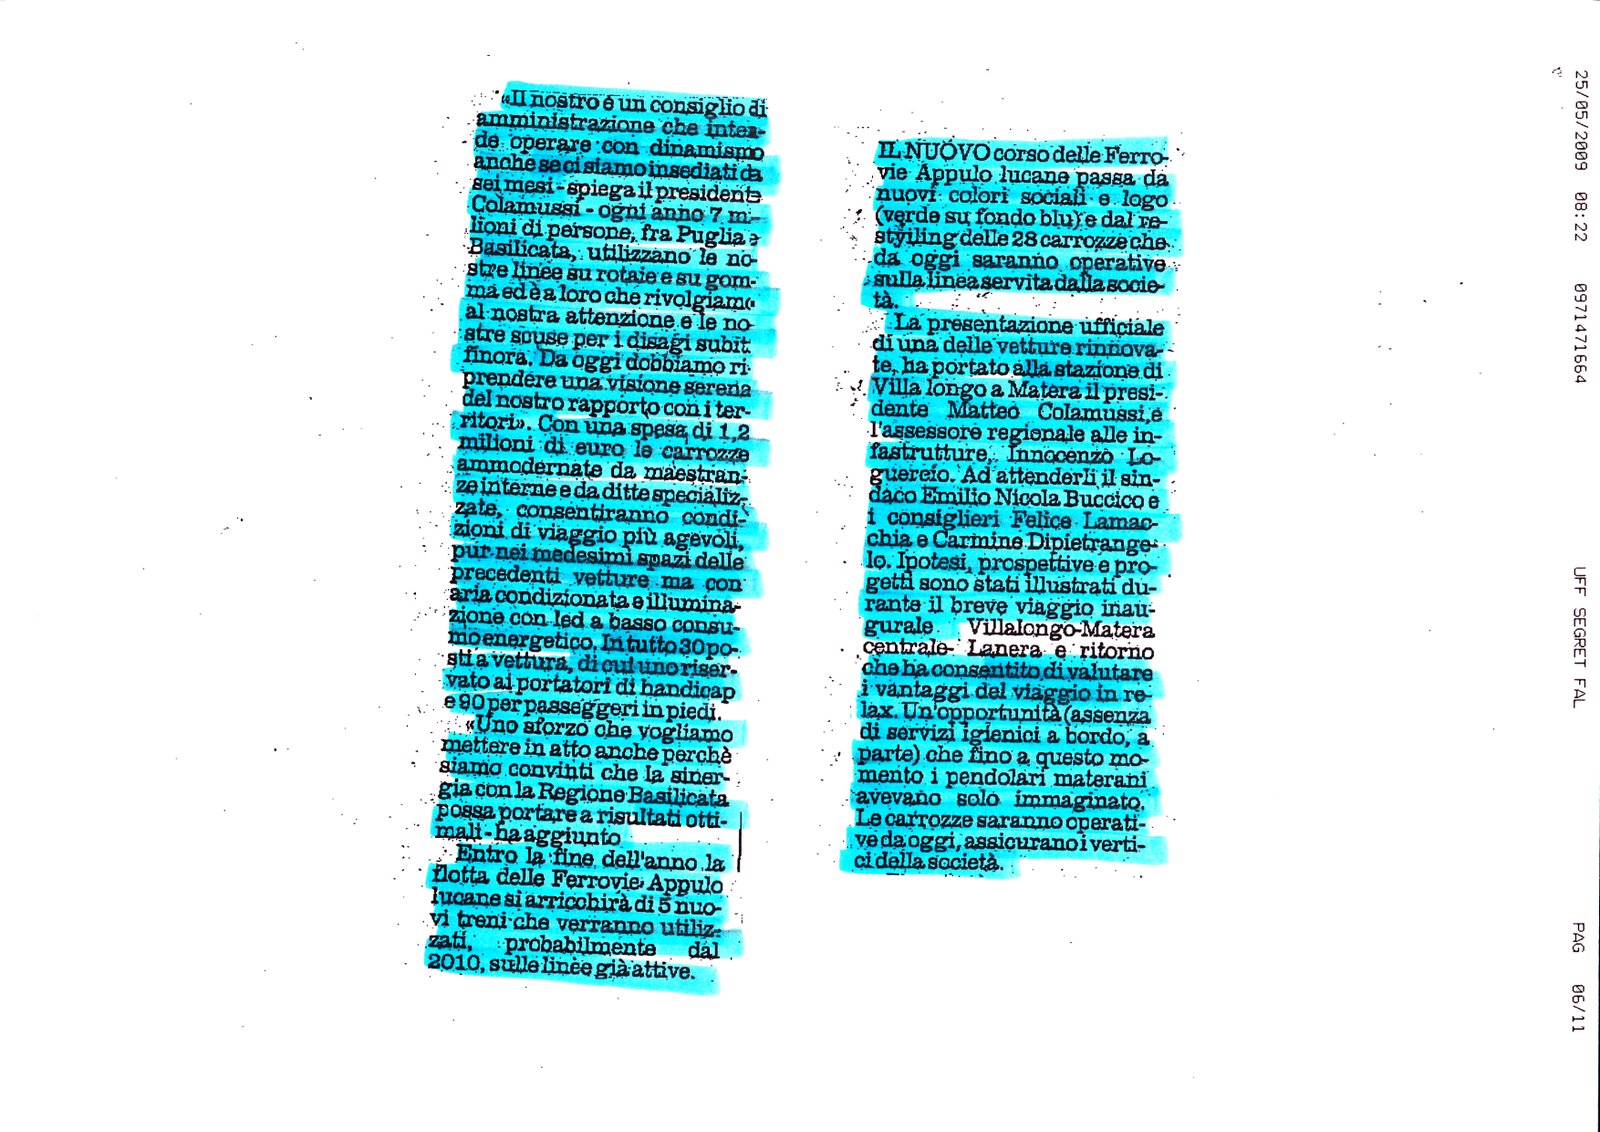 «Il nostro è un consiglio di
amministrazione che inten-
de operare con dinamismo
anche se ci siamo insediati da
sei mesi - spiega il presidente
Colamussi - ogni anno 7 mi-
lioni di persone, fra Puglia e
Basilicata, utilizzano le no-
stre linee su rotaie e su gom-
ma ed è a loro che rivolgiamo
al nostra attenzione e le no-
stre scuse per i disagi subit
finora. Da oggi dobbiamo ri-
prendere una visione serena
del nostro rapporto con i ter-
ritori». Con una spesa di 1,2
milioni di euro le carrozze
ammodernate da maestran-
ze interne e da ditte specializ-
zate, consentiranno condi-
zioni di viaggio più agevoli,
pur nei medesimi spazi delle
precedenti vetture ma con
aria condizionata e illumina-
zione con led a basso consu-
mo energetico. In tutto 30 po-
sti a vettura, di cui uno riser-
vato ai portatori di handicap
e 90 per passeggeri in piedi.
«Uno sforzo che vogliamo
mettere in atto anche perchè
siamo convinti che la siner-
gia con la Regione Basilicata
possa portare a risultati otti-
mali - ha aggiunto
Entro la fine dell'anno la
flotta delle Ferrovie Appulo
lucane si arricchirà di 5 nuo-
vi treni che verranno utiliz-
zati, probabilmente dal
2010, sulle linee già attive.
IL NUOVO corso delle Ferro-
vie Appulo lucane passa da
nuovi colori sociali e logo
(verde su fondo blu) e dal re-
styiling delle 28 carrozze che
da oggi saranno operative
sulla linea servita dalla socie-
tà.
La presentazione ufficiale
di una delle vetture rinnova-
te, ha portato alla stazione di
Villa longo a Matera il presi-
dente Matteo Colamussi, e
l'assessore regionale alle in-
fastrutture, Innocenzo Lo-
guercio. Ad attenderli il sin-
daco Emilio Nicola Buccico e
i consiglieri Felice Lamac-
chia e Carmine Dipietrange-
lo. Ipotesi, prospettive e pro-
getti sono stati illustrati du-
rante il breve viaggio inau-
gurale Villalongo-Matera
centrale- Lanera e ritorno
che ha consentito di valutare
i vantaggi del viaggio in re-
lax. Un'opportunità (assenza
di servizi igienici a bordo, a
parte) che fino a questo mo-
mento i pendolari materani
avevano solo immaginato.
Le carrozze saranno operati-
ve da oggi, assicurano i verti-
ci della società.
25/05/2009 08:22 0971471664 UFF SEGRET FAL PAG 06/11